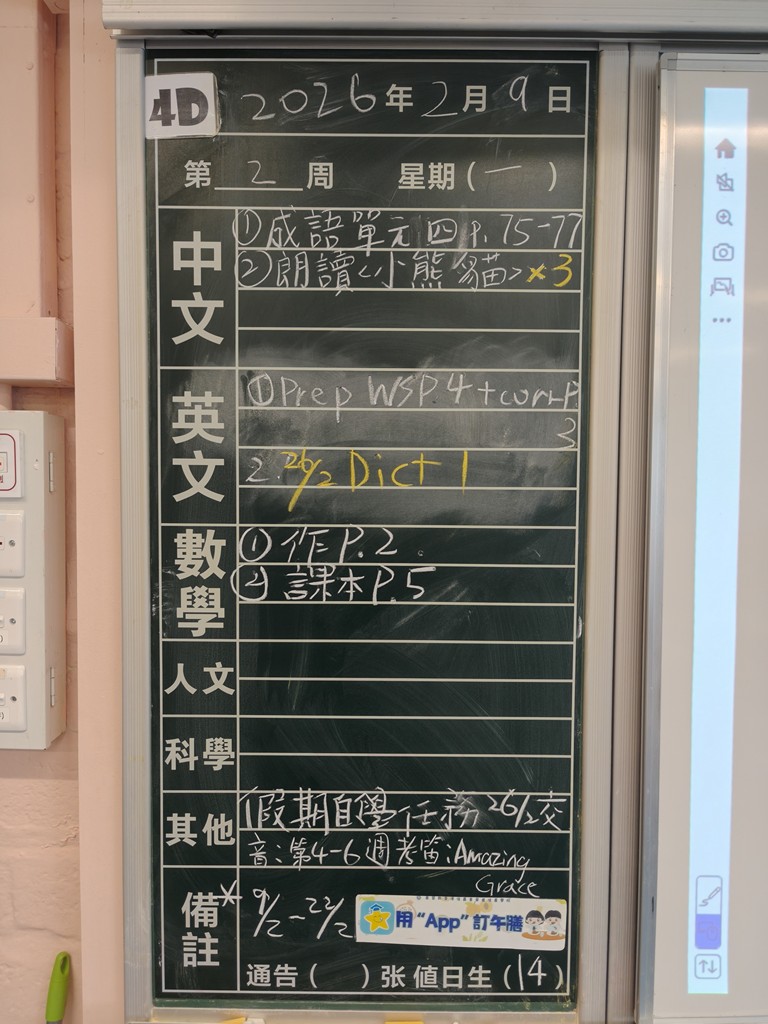 4D 2026年2月9日
第2周 星期(一)
中文
①成語單元四 P.75-77
②朗讀<小熊貓>×3
英文
①Prep WSP.4 + corr P.
3
2. 26/2 Dict 1
數學
①作P.2.
②課本P.5
人文
科學
其他
假期自學任務 26/2交
音:第4-6週考笛:Amazing
Grace
備註
* 9/2-22/2 用“App”訂午膳
通告( )张 值日生(14)